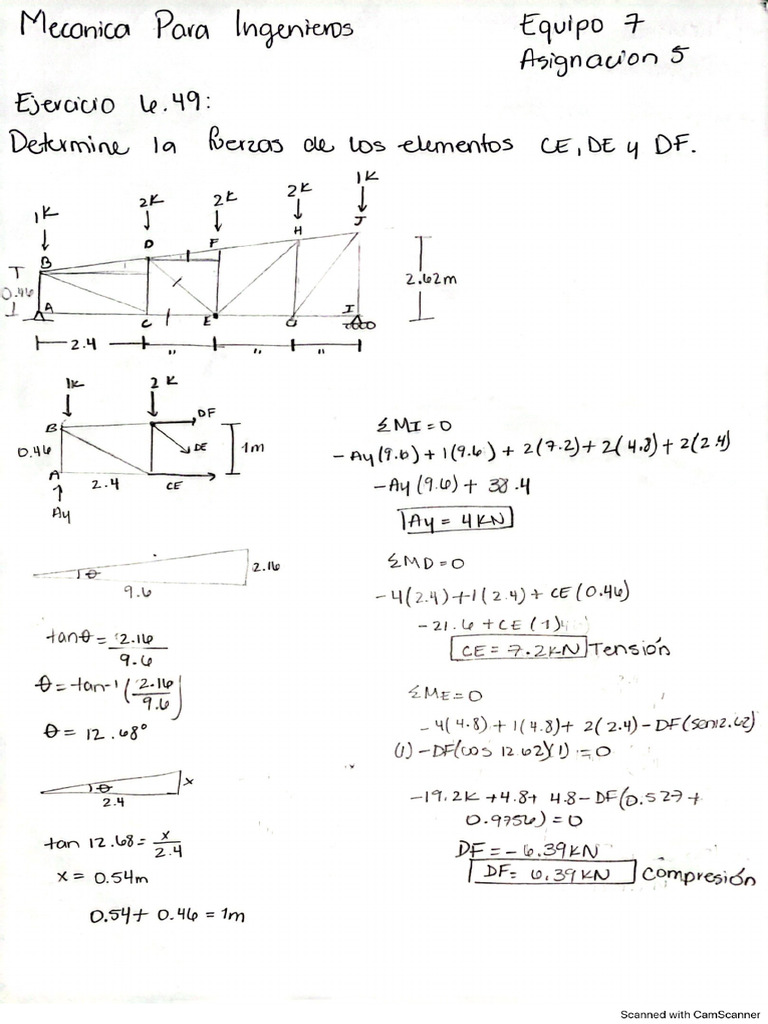 Mecanica Para Ingenieros
Equipo 7
Asignacion 5
Ejercicio 6.49:
Determine la fuerzas de los elementos CE, DE y DF.
1K
2K
2K
2K
1K
B
D
F
H
J
0.46
A
C
E
G
I
2.62m
2.4
"
"
"
1K
2K
DF
B
0.46
DE
1m
A
2.4
CE
Ay
θ
2.16
9.6
tanθ = 2.16
9.6
θ = tan-1 (2.16
9.6)
θ = 12.68°
θ
x
2.4
tan 12.68 = x
2.4
x = 0.54m
0.54 + 0.46 = 1m
ΣMI = 0
-Ay(9.6) + 1(9.6) + 2(7.2) + 2(4.8) + 2(2.4)
-Ay(9.6) + 38.4
Ay = 4KN
ΣMD = 0
-4(2.4) + 1(2.4) + CE(0.46)
-21.6 + CE(1)
CE = 7.2KN Tensión
ΣME = 0
-4(4.8) + 1(4.8) + 2(2.4) - DF(sen12.62)
(1) - DF(cos 12.62)(1) = 0
-19.2K + 4.8 + 4.8 - DF(0.527 +
0.9756) = 0
DF = -6.39KN
DF = 6.39KN Compresión
Scanned with CamScanner